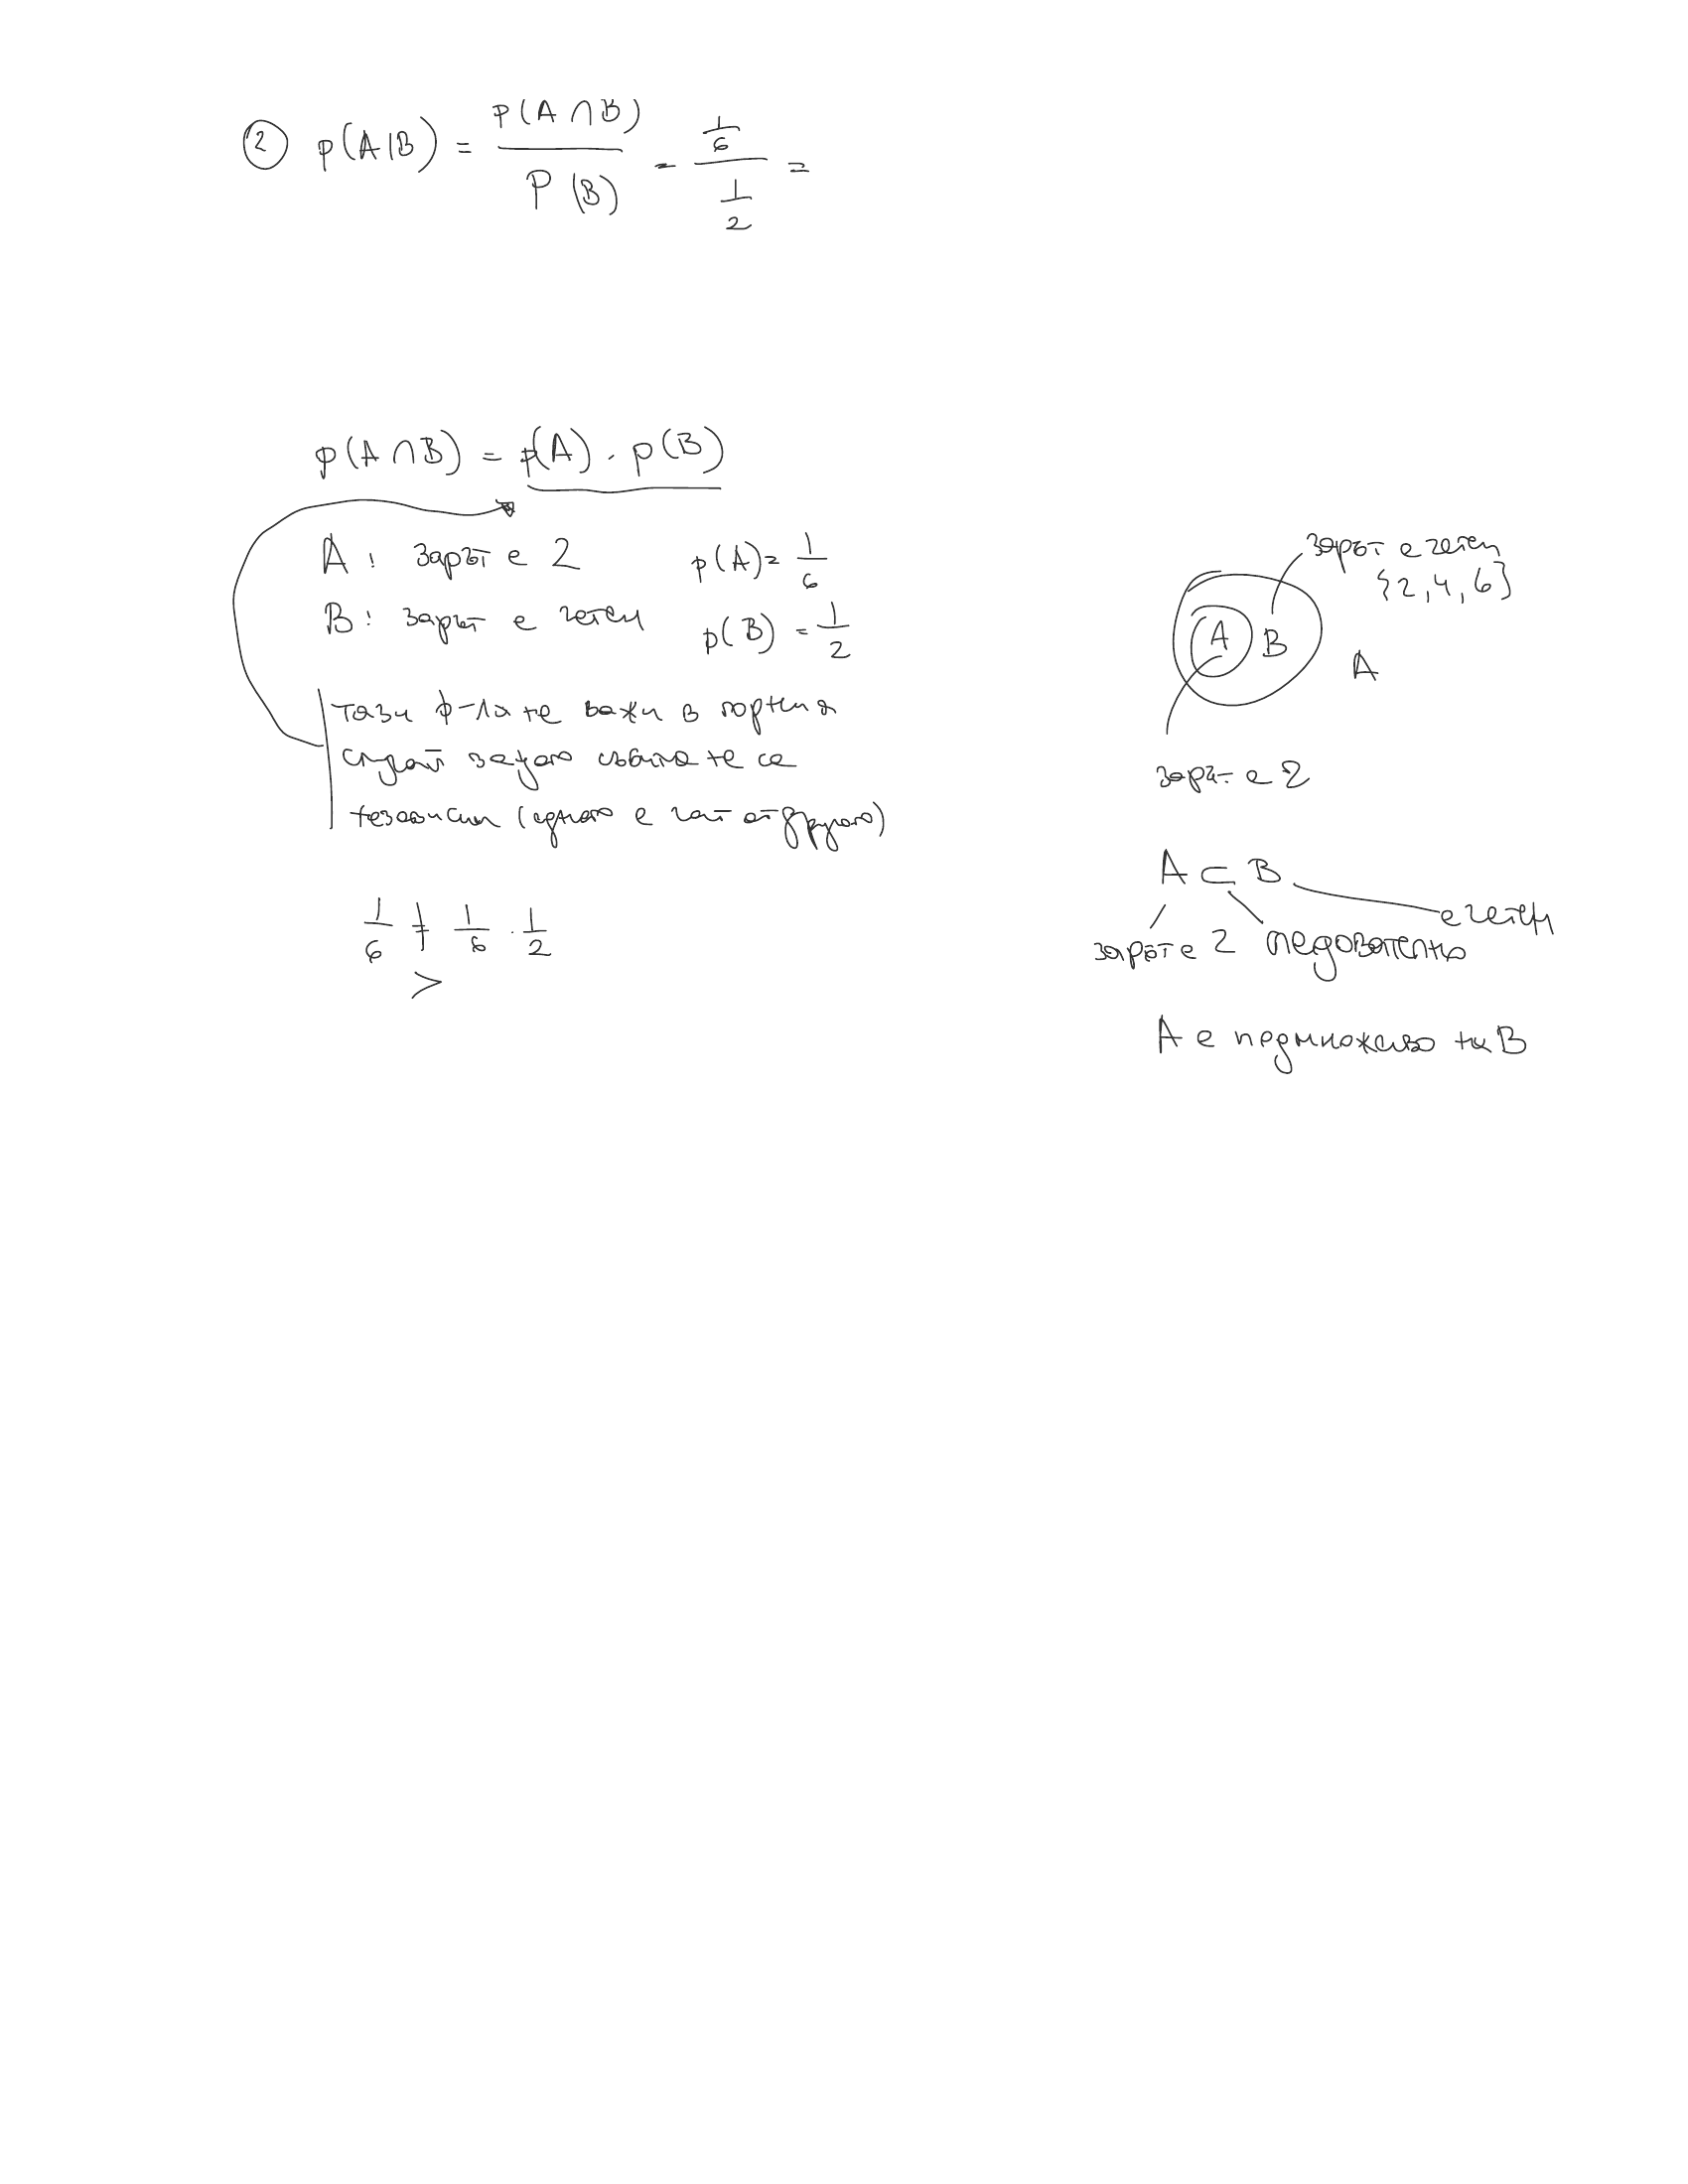 ② p(A|B) = p(A ∩ B) / P(B) = 1/6 / 1/2 =
p(A ∩ B) = p(A) . p(B)
A: зарът е 2 p(A) = 1/6
B: зарът е четен p(B) = 1/2
тази ф-ла не важи в горния
случай защото събитията не са
независими (едното е част от другото)
1/6 ≠ 1/6 . 1/2
>
зарът е четен
{2,4,6}
A B
A
зарът е 2
A ⊂ B
е четен
зарът е 2 следователно
A е подмножество на B